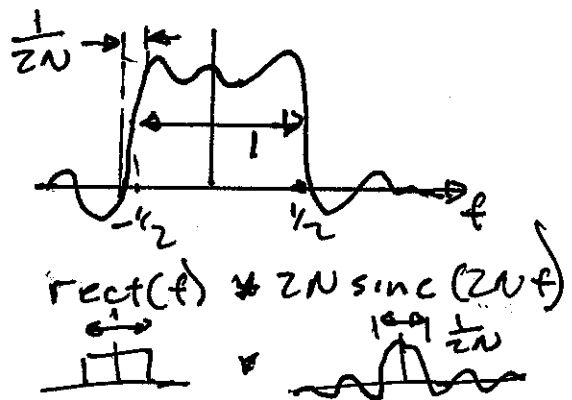 1/2N
1
-1/2 1/2 f
rect(f) * 2N sinc(2Nf)
1 * 1/2N